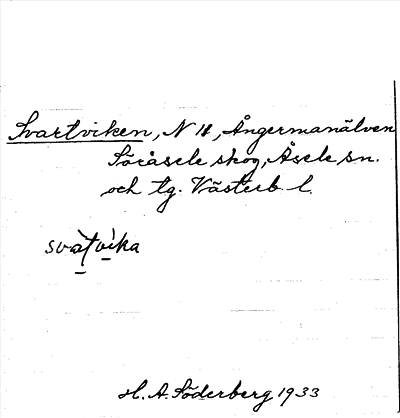 Svartviken, N 11, Ångermanälven
Söråsele skog, Åsele sn.
och tg. Västerb. l.
svàtvìka
H. A. Söderberg 1933